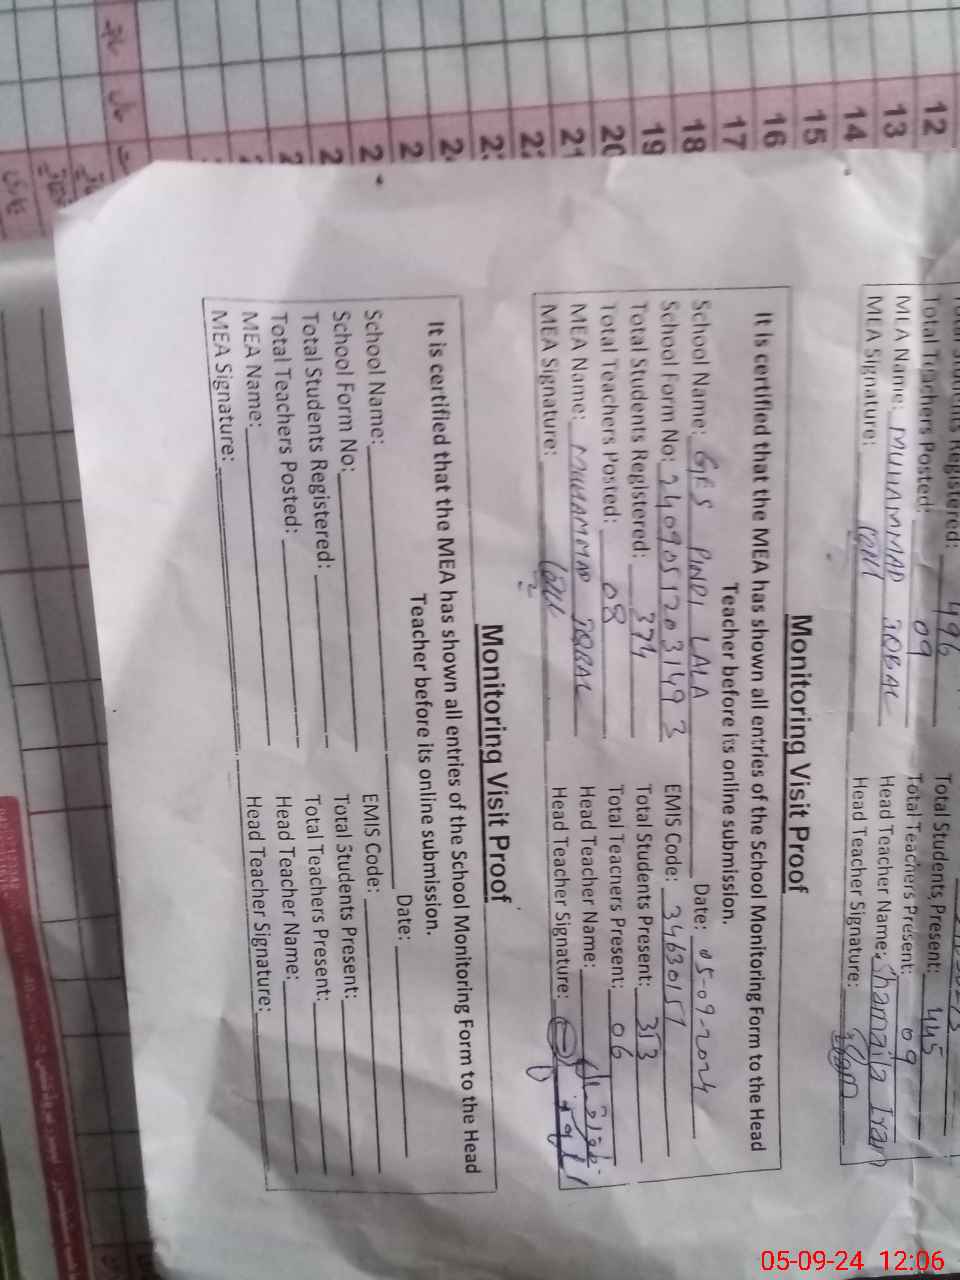 12
13
14
15
16
17
18
19
20
21
Total Teachers Posted: 09 Total Students Present: 445
MEA Name: MUHAMMAD IQBAL Total Teachers Present: 09
MEA Signature: Head Teacher Name: Shamaila Iran
Head Teacher Signature:
Monitoring Visit Proof
It is certified that the MEA has shown all entries of the School Monitoring Form to the Head
Teacher before its online submission.
School Name: GES PINDI LALA Date: 05-09-2024
School Form No: 2409051203149 3 EMIS Code: 34630157
Total Students Registered: 374 Total Students Present: 313
Total Teachers Posted: 08 Total Teachers Present: 06
MEA Name: MUHAMMAD IQBAL Head Teacher Name:
MEA Signature: Head Teacher Signature:
Monitoring Visit Proof
It is certified that the MEA has shown all entries of the School Monitoring Form to the Head
Teacher before its online submission.
School Name: Date:
School Form No: EMIS Code:
Total Students Registered: Total Students Present:
Total Teachers Posted: Total Teachers Present:
MEA Name: Head Teacher Name:
MEA Signature: Head Teacher Signature:
05-09-24 12:06